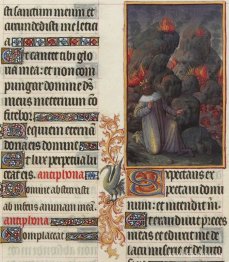 sti sanctum meum et
circumdedisti me letitia
Et cantet tibi glo
ria mea: et non com
pungar domine ds
meus in eternum co
fitebor tibi
Requiem eternā
dona eis domine
Et lux perpetua lu
ceat eis. antiphona
Domine abstraxiste
ab inferis animam meā.
antiphona
Complaceat
Expectans ex
pectaui domi
num: et intendit m
Et exaudiuit preces
meas et eduxit me de
lacu miserie et de luto